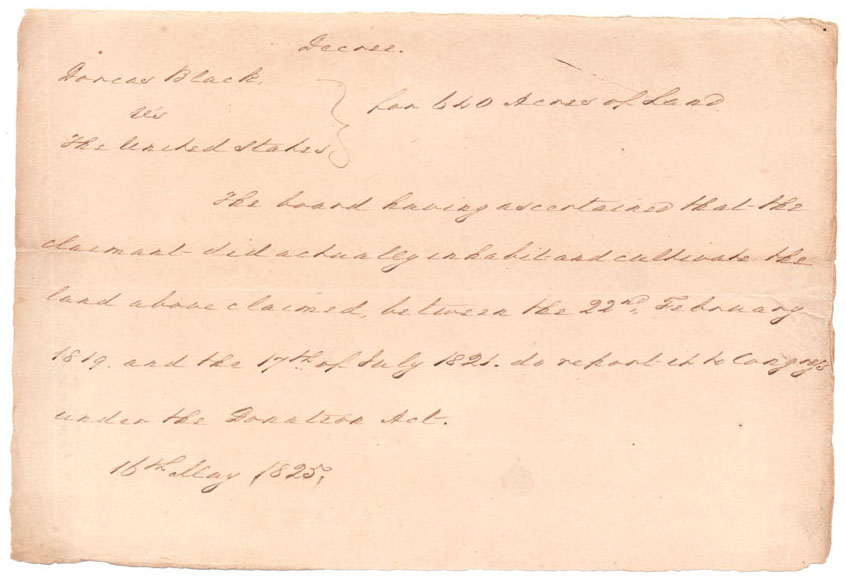 Decree.
Dorcas Black,
vs
The United States,
for 640 Acres of Land
The board having ascertained that the
claimant did actually inhabit and cultivate the
land above claimed, between the 22nd, February
1819. and the 17th of July 1821. do report it to Congress
under the Donation Act.
16th May 1825,